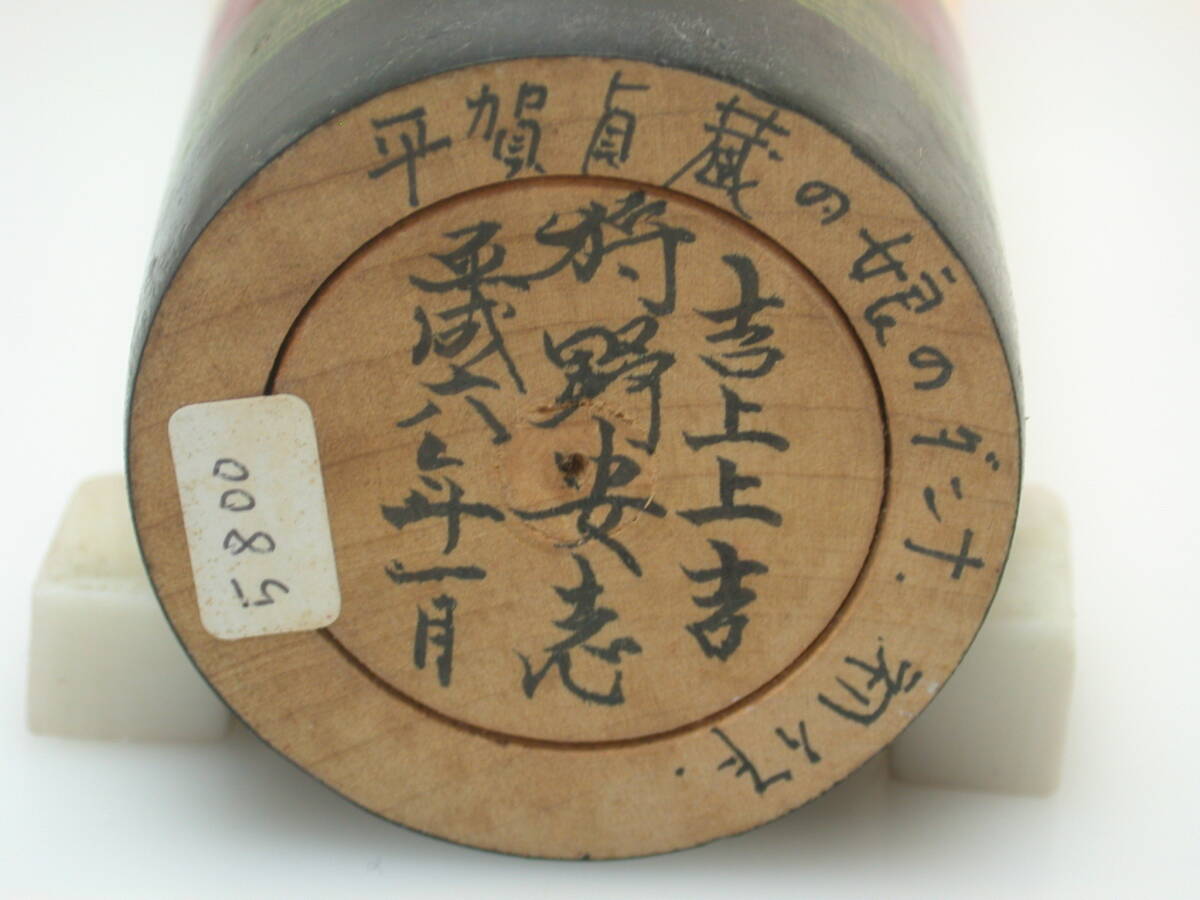 平賀貞蔵の娘のダンナ.
吉上上吉
狩野安志
平成六年一月
5800